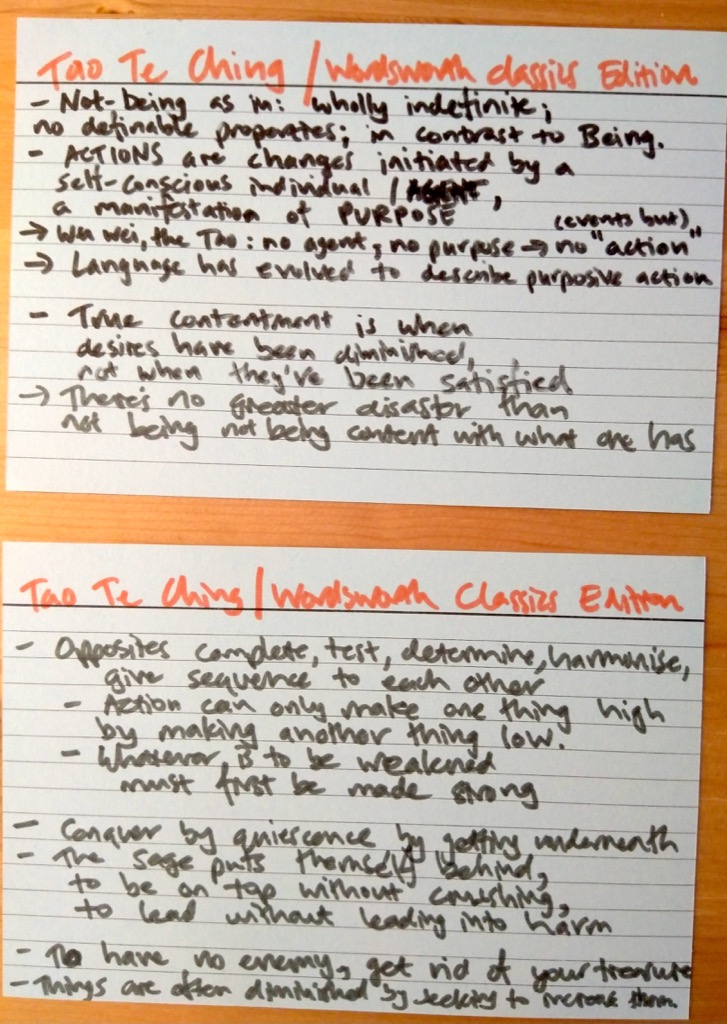 Tao Te Ching / Wordsworth Classics Edition
- Not-being as in: wholly indefinite;
no definable properates; in contrast to Being.
- ACTIONS are changes initiated by a
self-conscious individual / AGENT,
a manifestation of PURPOSE
(events but)
→ Wu wei, the Tao: no agent, no purpose → no "action"
→ Language has evolved to describe purposive action
- True contentment is when
desires have been diminished,
not when they've been satisfied
→ There's no greater disaster than
not being not being content with what one has
Tao Te Ching / Wordsworth Classics Edition
- Opposites complete, test, determine, harmonise,
give sequence to each other
- Action can only make one thing high
by making another thing low.
- Whatever is to be weakened
must first be made strong
- Conquer by quiescence by getting underneath
- The sage puts themself behind,
to be on top without crushing,
to lead without leading into harm
- To have no enemy, get rid of your treasure
- Things are often diminished by seeking to increase them.